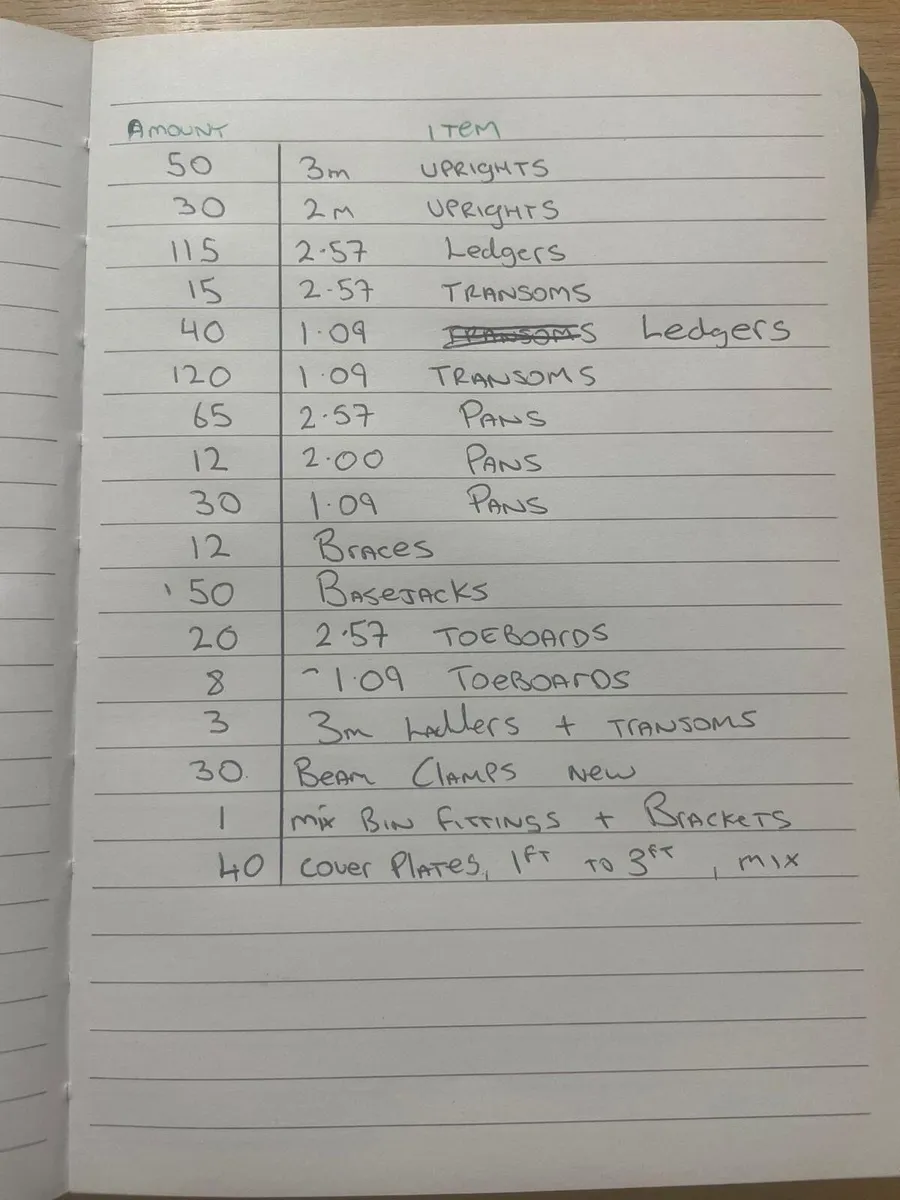 AMOUNT ITEM
50 3m UPRIGHTS
30 2m UPRIGHTS
115 2.57 Ledgers
15 2.57 TRANSOMS
40 1.09 TRANSOMS Ledgers
120 1.09 TRANSOMS
65 2.57 PANS
12 2.00 PANS
30 1.09 PANS
12 Braces
50 BASEJACKS
20 2.57 TOEBOARDS
8 1.09 TOEBOARDS
3 3m Ladders + TRANSOMS
30 BEAM CLAMPS NEW
1 mix BIN FITTINGS + BRACKETS
40 COVER PLATES, 1FT TO 3FT, MIX